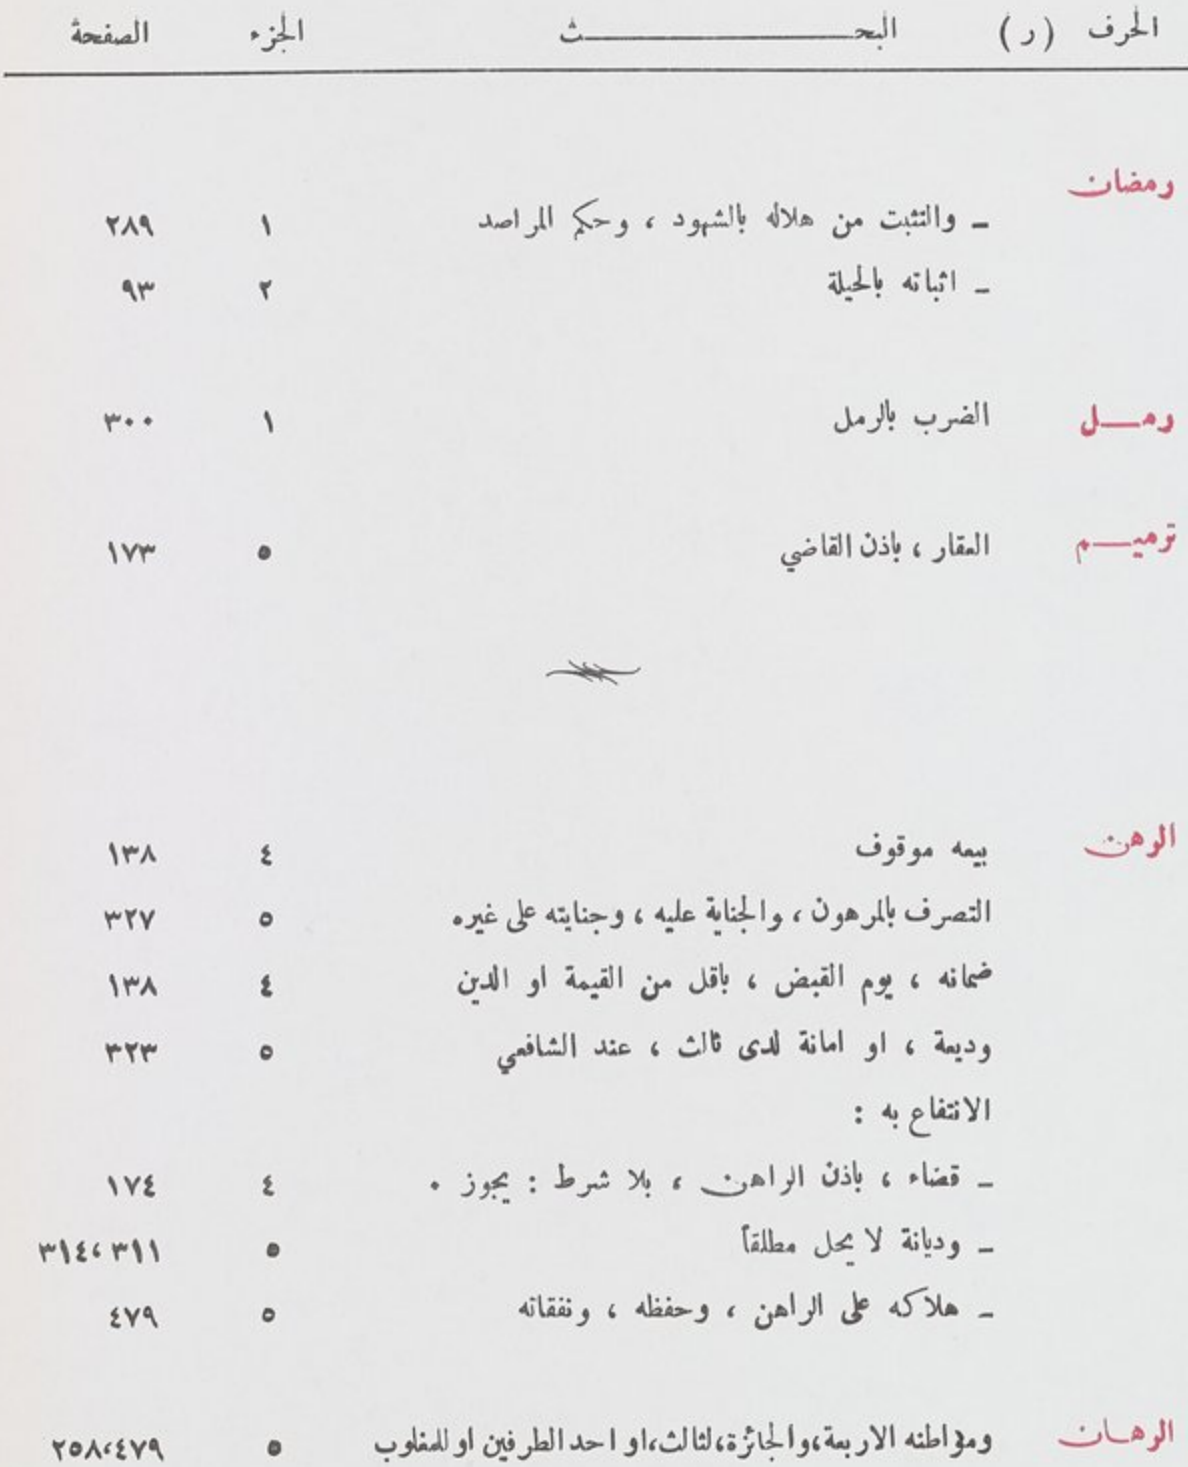 الحرف (ر) البحـــــث الجزء الصفحة
رمضان
ـ والتثبت من هلاله بالشهود ، وحكم المراصد ١ ٢٨٩
ـ اثباته بالحيلة ٢ ٩٣
رمــل الضرب بالرمل ١ ٣٠٠
ترميــم العقار ، باذن القاضي ٥ ١٧٣
الرهن بيعه موقوف ٤ ١٣٨
التصرف بالمرهون ، والجناية عليه ، وجنايته على غيره ٥ ٣٢٧
ضمانه ، يوم القبض ، باقل من القيمة او الدين ٤ ١٣٨
وديعة ، او امانة لدى ثالث ، عند الشافعي ٥ ٣٢٣
الانتفاع به :
ـ قضاء ، باذن الراهن ، بلا شرط : يجوز . ٤ ١٧٤
ـ وديانة لا يحل مطلقاً ٥ ٣١١،٣١٤
ـ هلاكه على الراهن ، وحفظه ، ونفقاته ٥ ٤٧٩
الرهــان ومواطنه الاربعة،والجائزة،لثالث،او احد الطرفين او للمغلوب ٥ ٤٧٩،٢٥٨